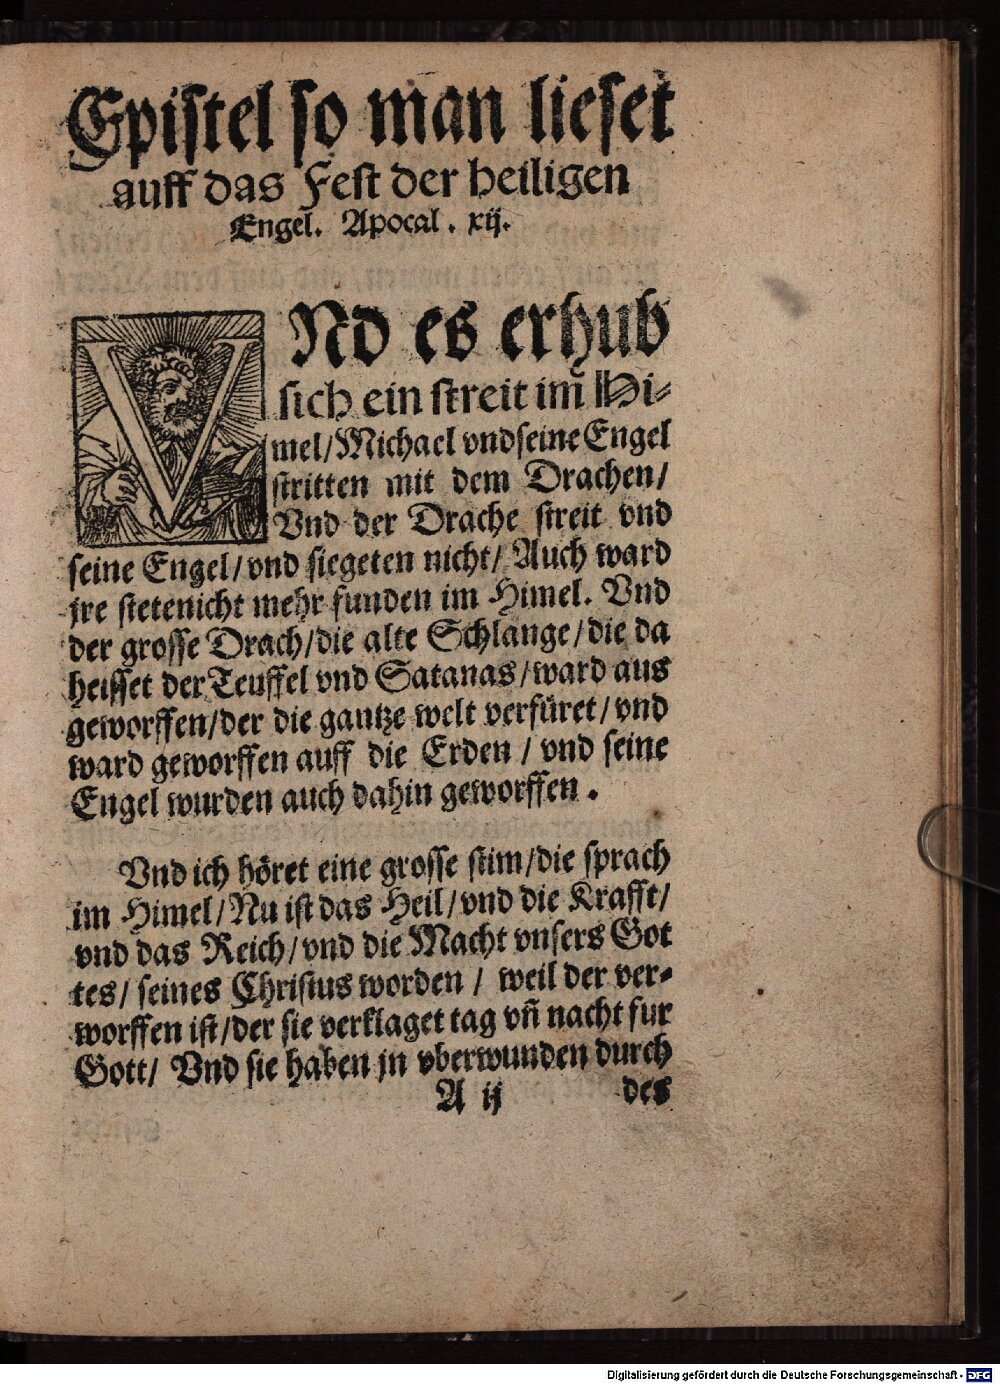 Epistel so man lieset
auff das Fest der heiligen
Engel. Apocal. xij.
VNd es erhub
sich ein streit im̃ Hi-
mel/Michael vnd seine Engel
stritten mit dem Drachen/
Vnd der Drache streit vnd
seine Engel/vnd siegeten nicht/Auch ward
jre stetenicht mehr funden im Himel. Vnd
der grosse Drach/die alte Schlange/die da
heisset der Teuffel vnd Satanas/ward aus
geworffen/der die gantze welt verfüret/vnd
ward geworffen auff die Erden / vnd seine
Engel wurden auch dahin geworffen.
Vnd ich höret eine grosse stim/die sprach
im Himel/Nu ist das Heil/vnd die Krafft/
vnd das Reich/vnd die Macht vnsers Got
tes/ seines Christus worden / weil der ver-
worffen ist/der sie verklaget tag vñ nacht fur
Gott/ Vnd sie haben jn vberwunden durch
A ij des
Digitalisierung gefördert durch die Deutsche Forschungsgemeinschaft - DFG